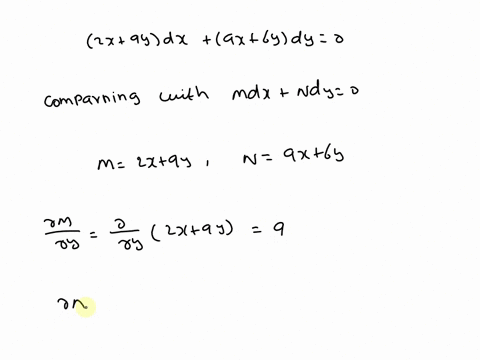 (2x+9y)dx +(9x+6y)dy=0
comparning with mdx + Ndy=0
M= 2x+9y , N= 9x+6y
∂M/∂y = ∂/∂y (2x+9y) = 9
∂n